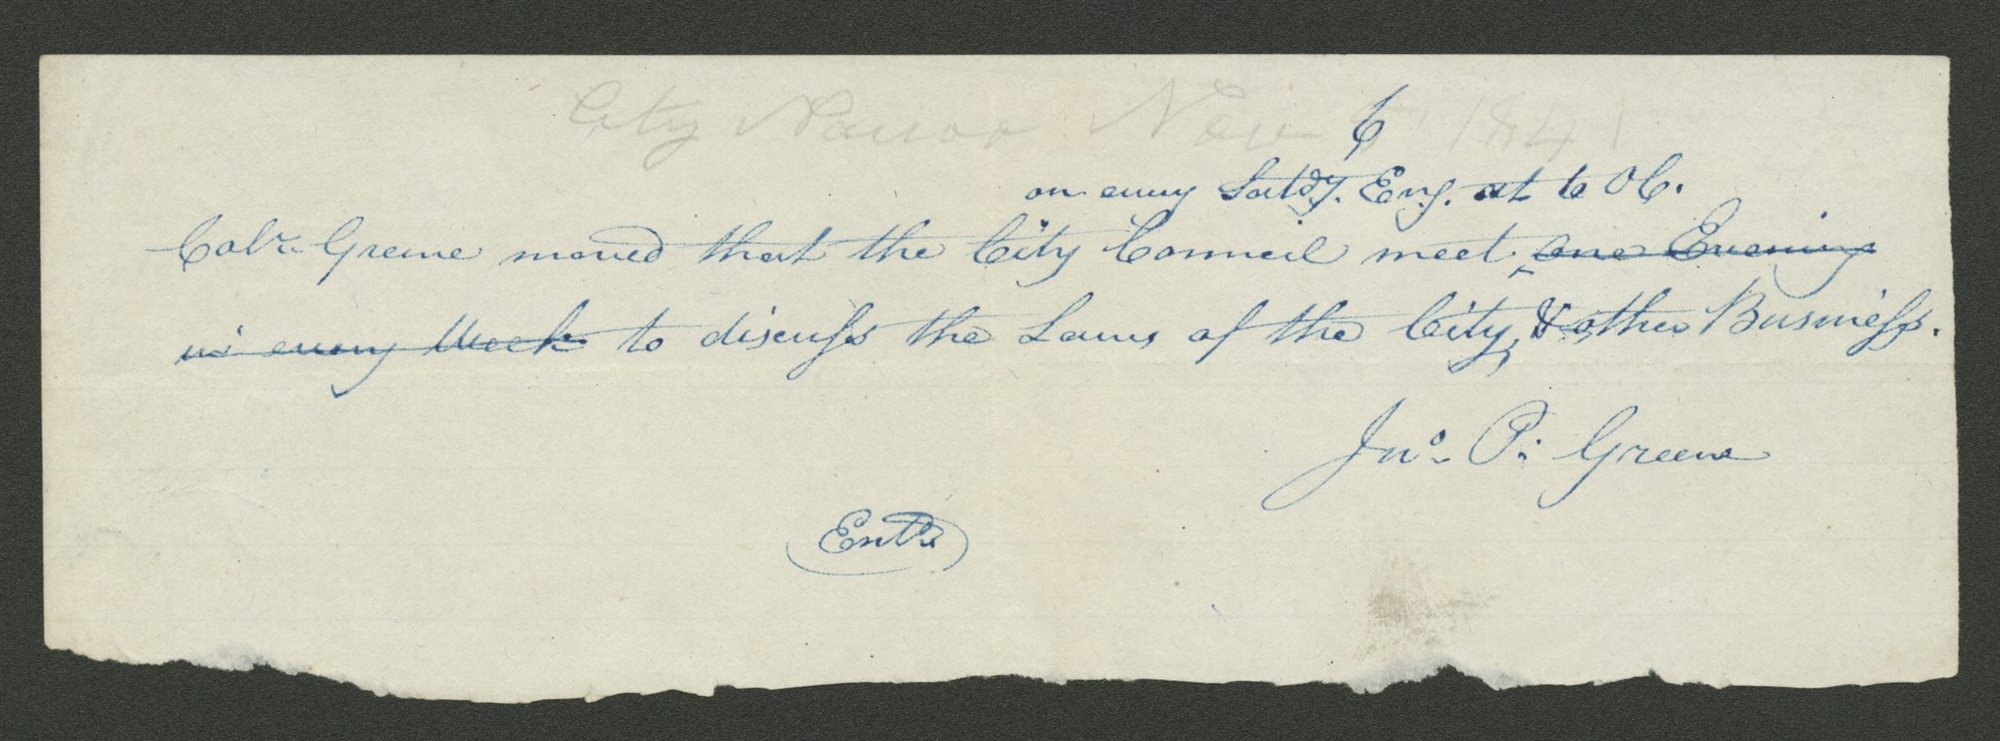 City Nauvoo Nov 1841
6
on every Satdy. Eng. at 6 OC.
Colr. Greene moved that the City Council meet one Evening
in every Week to discuss the Laws of the City, & other Business.
Jno. P. Greene
Entd.